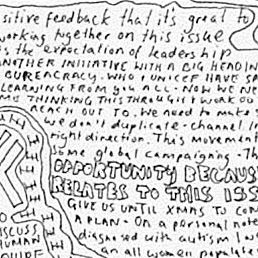 sitive feedback that it's great to
working together on this issue
is the expectation of leadership
ANOTHER INITIATIVE WITH A BIG HEADIN
BUREACRACY. WHO & UNICEF HAVE SP
LEARNING FROM YOU ALL. NOW WE NE
MS THINKING THIS THROUGH & WORK OU
REACH OUT TO. We need to make s
we don't duplicate - channel in
right direction. This movement
some global campaigning - Th
OPPORTUNITY BECAUS
RELATES TO THIS ISS
GIVE US UNTIL XMAS TO COM
A PLAN - On a personal note
diagnosed with autism I w
an all women populate
TO
ISCUSS
HUMAN